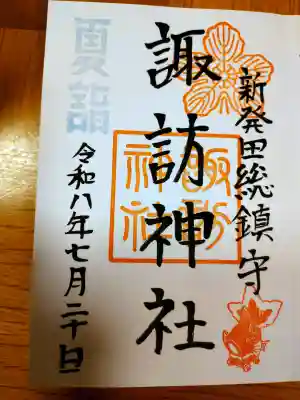 新発田総鎮守
諏訪神社
諏訪
神社
夏詣
令和八年七月二十日